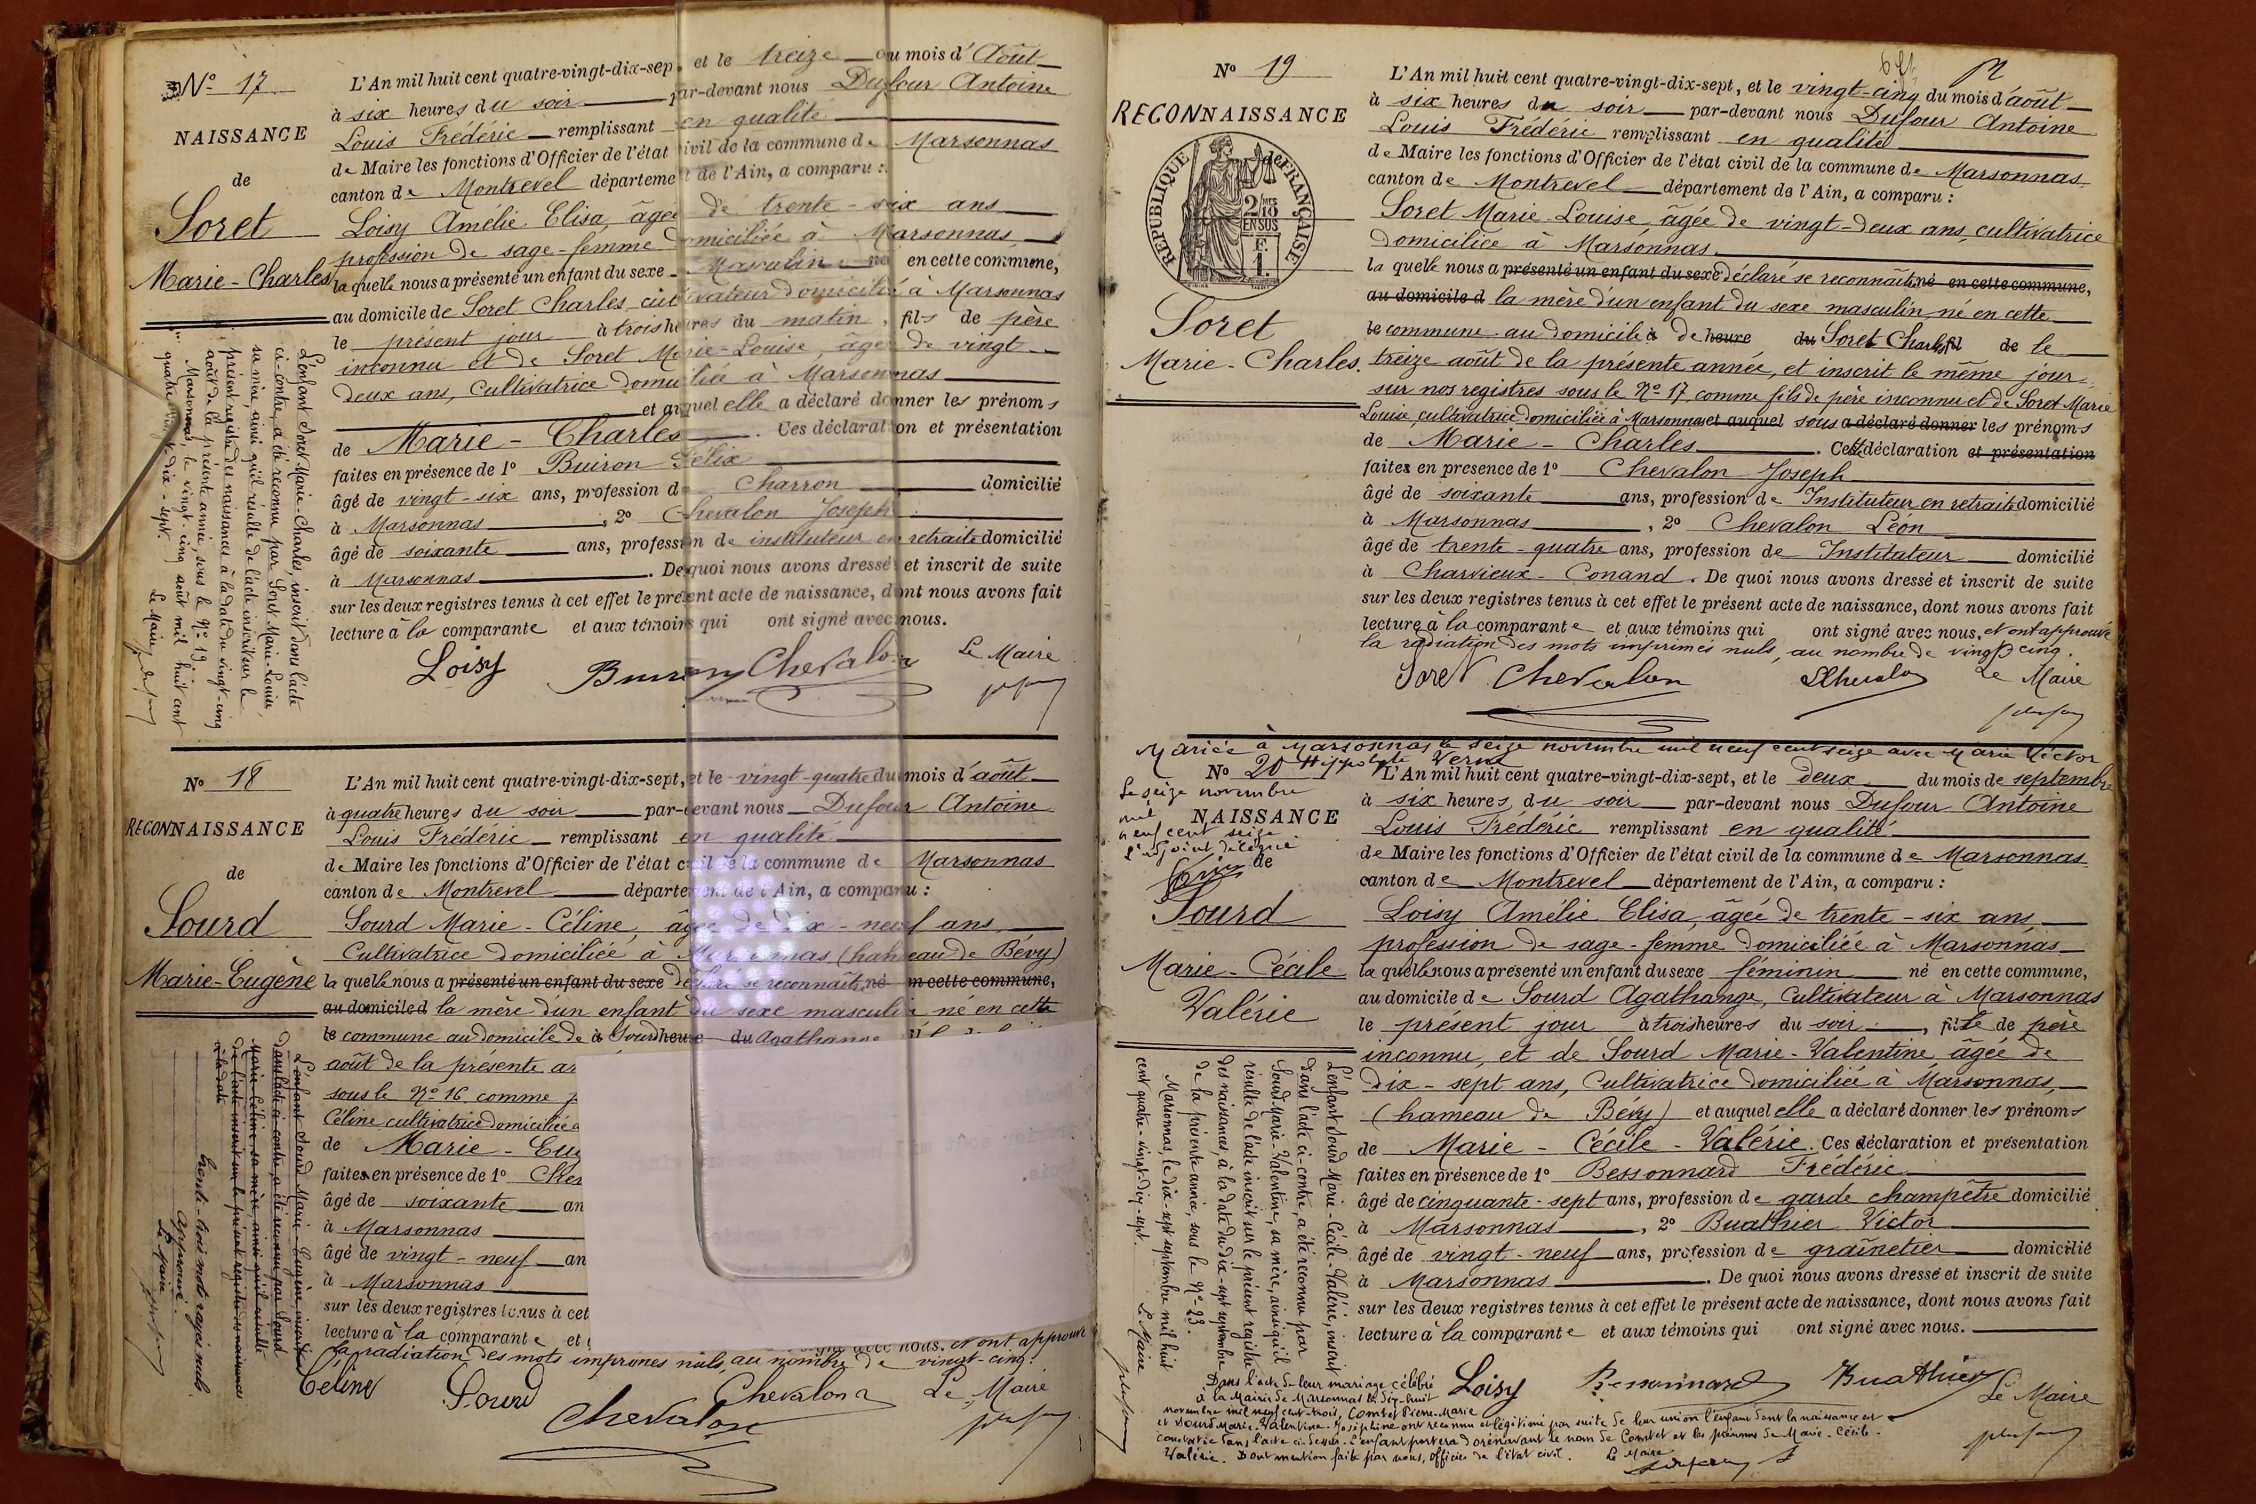 Nº 17
NAISSANCE
de
Soret
Marie-Charles
L'An mil huit cent quatre-vingt-dix-sept et le treize du mois d'Août
à six heures du soir par-devant nous Dufour Antoine
Louis Frédéric remplissant en qualité
de Maire les fonctions d'Officier de l'état civil de la commune de Marsonnas
canton de Montrevel département de l'Ain, a comparu :
Loisy Amélie Elisa, âgée de trente-six ans
profession de sage-femme domiciliée à Marsonnas
la quelle nous a présenté un enfant du sexe Masculin né en cette commune,
au domicile de Soret Charles, cultivateur domicilié à Marsonnas
le présent jour à trois heures du matin, fils de père
inconnu et de Soret Marie-Louise, âgée de vingt
deux ans, Cultivatrice domiciliée à Marsonnas
et auquel elle a déclaré donner les prénoms
de Marie-Charles. Ces déclaration et présentation
faites en présence de 1º Buiron Félix
âgé de vingt-six ans, profession de Charron domicilié
à Marsonnas, 2º Chevalon Joseph
âgé de soixante ans, profession de instituteur en retraite domicilié
à Marsonnas. De quoi nous avons dressé et inscrit de suite
sur les deux registres tenus à cet effet le présent acte de naissance, dont nous avons fait
lecture à la comparante et aux témoins qui ont signé avec nous.
Loisy Buiron Chevalon Le Maire
L'enfant Soret Marie-Charles, inscrit dans l'acte
ci-contre, a été reconnu par Soret Marie-Louise,
sa mère, ainsi qu'il résulte de l'acte inscrit sur le
présent registre des naissances à la date du vingt-cinq
août de la présente année, sous le Nº 19.
Marsonnas, le vingt-cinq août mil huit cent
quatre vingt-dix-sept.
Le Maire
Nº 18
RECONNAISSANCE
de
Sourd
Marie-Eugène
L'An mil huit cent quatre-vingt-dix-sept, et le vingt-quatre du mois d'août
à quatre heures du soir par-devant nous Dufour Antoine
Louis Frédéric remplissant en qualité
de Maire les fonctions d'Officier de l'état civil de la commune de Marsonnas
canton de Montrevel département de l'Ain, a comparu :
Sourd Marie-Céline, âgée de dix-neuf ans
Cultivatrice domiciliée à Marsonnas (hameau de Bévy)
la quelle nous a présenté un enfant du sexe déclaré se reconnaître né en cette commune,
au domicile d la mère d'un enfant du sexe masculin né en cette
le commune au domicile de à Sourd heure du Agathange
août de la présente
sous le Nº 16 comme
Céline cultivatrice domiciliée
de Marie-Eug
faites en présence de 1º Chev
âgé de soixante an
à Marsonnas
âgé de vingt-neuf an
à Marsonnas
sur les deux registres tenus à cet
lecture à la comparante et
signé avec nous. et ont approuvé
la radiation des mots imprimés nuls, au nombre de vingt-cinq.
Céline Sourd Chevalon Chevalon Le Maire
L'enfant Sourd Marie-Eugène inscrit
dans l'acte ci-contre, a été reconnu par Sourd
Marie-Céline sa mère, ainsi qu'il résulte
de l'acte inscrit sur le présent registre des naissances
à la date
trente-trois mots rayés nuls.
Approuvé.
Le Maire
Nº 19
RECONNAISSANCE
RÉPUBLIQUE FRANÇAISE
2/10 MES
EN SUS
F.
1.
de
Soret
Marie-Charles.
L'An mil huit cent quatre-vingt-dix-sept, et le vingt-cinq du mois d'août
à six heures du soir par-devant nous Dufour Antoine
Louis Frédéric remplissant en qualité
de Maire les fonctions d'Officier de l'état civil de la commune de Marsonnas
canton de Montrevel département de l'Ain, a comparu :
Soret Marie-Louise, âgée de vingt-deux ans, cultivatrice
domiciliée à Marsonnas
la quelle nous a présenté un enfant du sexe déclaré se reconnaître né en cette commune,
au domicile d la mère d'un enfant du sexe masculin né en cette
le commune au domicile à de heure du Soret Charles fil de le
treize août de la présente année, et inscrit le même jour
sur nos registres sous le Nº 17 comme fils de père inconnu et de Soret Marie
Louise, cultivatrice domiciliée à Marsonnas et auquel sous a déclaré donner les prénoms
de Marie-Charles. Cette déclaration et présentation
faites en présence de 1º Chevalon Joseph
âgé de soixante ans, profession de Instituteur en retraite domicilié
à Marsonnas, 2º Chevalon Léon
âgé de trente-quatre ans, profession de Instituteur domicilié
à Charvieux-Conand. De quoi nous avons dressé et inscrit de suite
sur les deux registres tenus à cet effet le présent acte de naissance, dont nous avons fait
lecture à la comparante et aux témoins qui ont signé avec nous, et ont approuvé
la radiation des mots imprimés nuls, au nombre de vingt cinq.
Soret Chevalon LChevalon Le Maire
Mariée à Marsonnas le seize novembre mil neuf cent seize avec Marie Victor
Hippolyte Verne
Le seize novembre
mil
neuf cent seize
L'adjoint délégué
Nº 20
NAISSANCE
de
Sourd
Marie-Cécile
Valérie
L'An mil huit cent quatre-vingt-dix-sept, et le deux du mois de septembre
à six heures du soir par-devant nous Dufour Antoine
Louis Frédéric remplissant en qualité
de Maire les fonctions d'Officier de l'état civil de la commune de Marsonnas
canton de Montrevel département de l'Ain, a comparu :
Loisy Amélie Elisa, âgée de trente-six ans,
profession de sage-femme domiciliée à Marsonnas
la quelle nous a présenté un enfant du sexe féminin né en cette commune,
au domicile de Sourd Agathange, Cultivateur à Marsonnas
le présent jour à trois heures du soir, fille de père
inconnu, et de Sourd Marie-Valentine âgée de
dix-sept ans, Cultivatrice domiciliée à Marsonnas,
(hameau de Bévy) et auquel elle a déclaré donner les prénoms
de Marie-Cécile-Valérie. Ces déclaration et présentation
faites en présence de 1º Bessonnard Frédéric
âgé de cinquante-sept ans, profession de garde champêtre domicilié
à Marsonnas, 2º Buathier Victor
âgé de vingt-neuf ans, profession de grainetier domicilié
à Marsonnas. De quoi nous avons dressé et inscrit de suite
sur les deux registres tenus à cet effet le présent acte de naissance, dont nous avons fait
lecture à la comparante et aux témoins qui ont signé avec nous.
Loisy Bessonnard Buathier Le Maire
L'enfant Sourd Marie-Cécile-Valérie, inscrit
dans l'acte ci-contre, a été reconnu par
Sourd Marie-Valentine, sa mère, ainsi qu'il
résulte de l'acte inscrit sur le présent registre
des naissances, à la date du dix-sept septembre
de la présente année, sous le Nº 23.
Marsonnas, le dix-sept septembre mil huit
cent quatre-vingt-dix-sept.
Le Maire
Dans l'acte de leur mariage célébré
à la Mairie de Marsonnas le dix-huit
novembre mil neuf cent-trois, Comtet Pierre-Marie
et Sourd Marie-Valentine-Joséphine ont reconnu et légitimé par suite de leur union l'enfant dont la naissance est
constatée dans l'acte ci-dessus. L'enfant portera dorénavant le nom de Comtet et les prénoms de Marie-Cécile-
Valérie. Dont mention faite par nous, officier de l'état civil. Le Maire